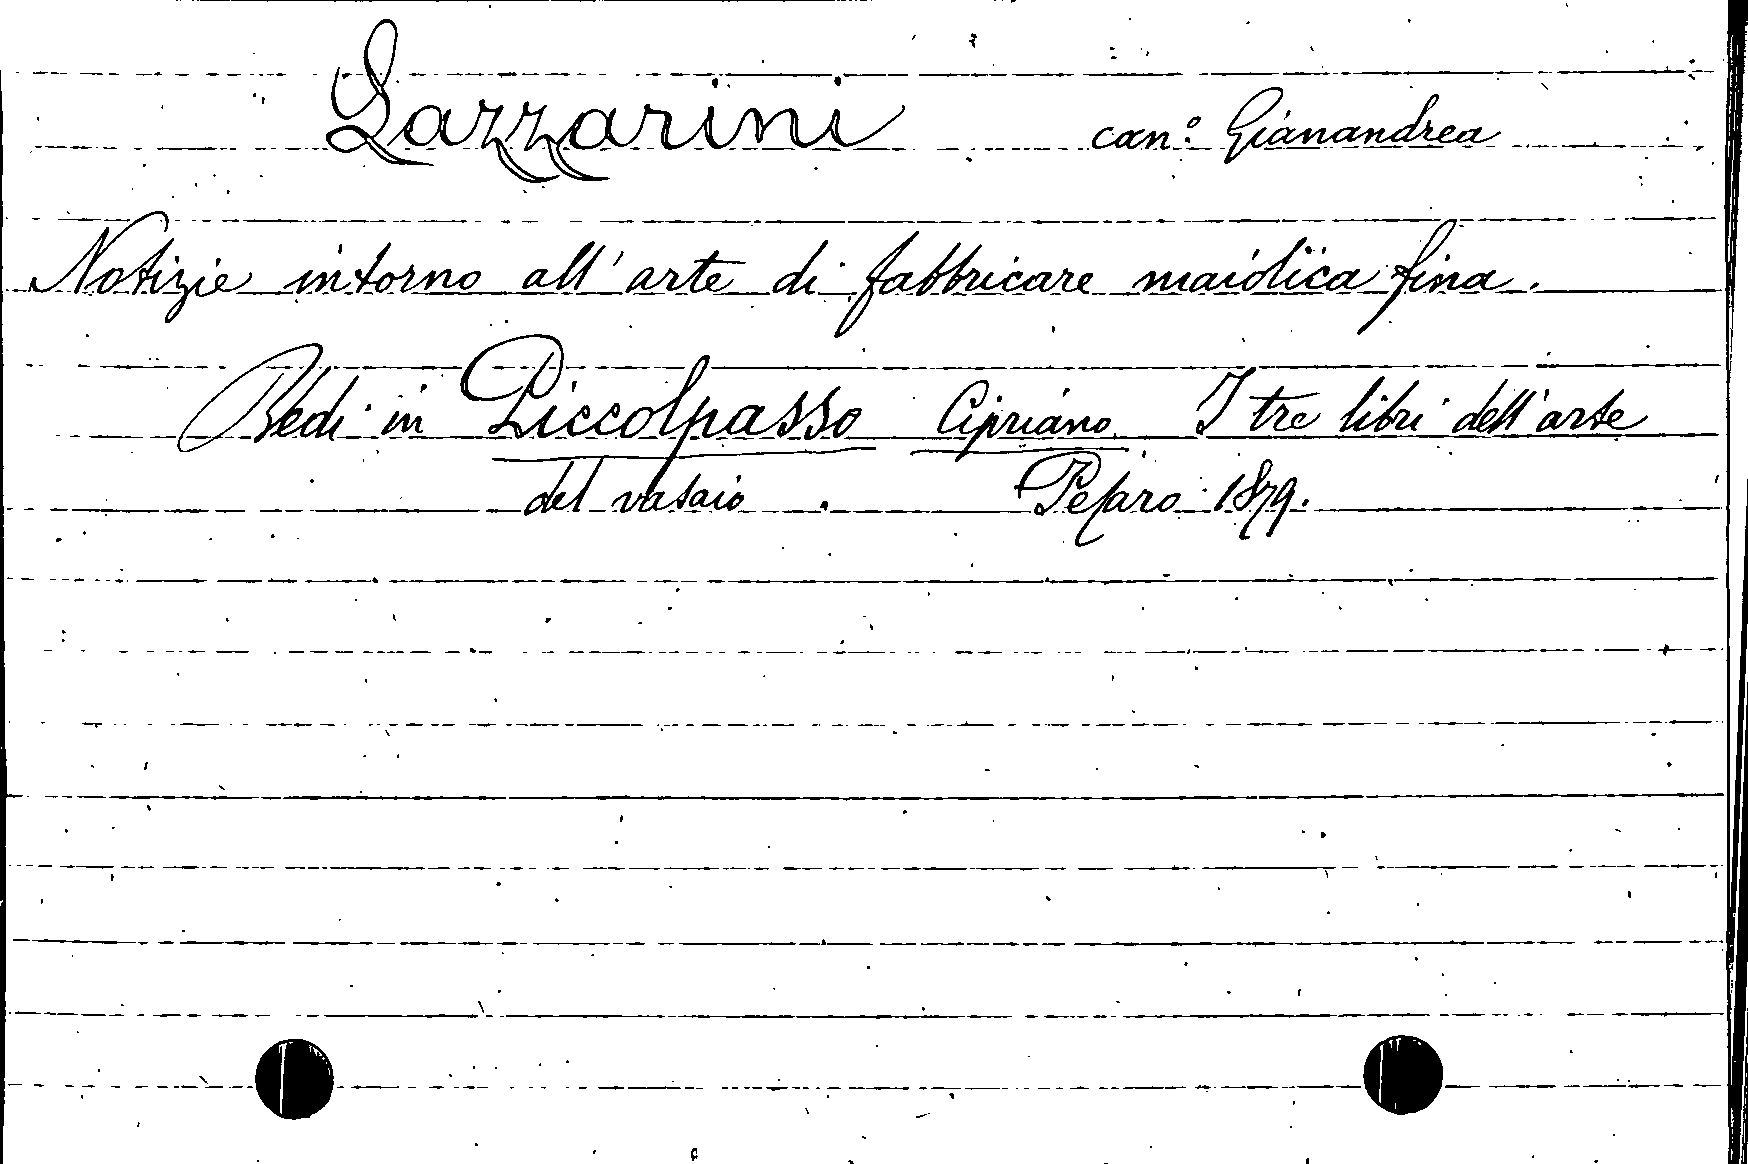 Lazzarini can.º Gianandrea
Notizie intorno all'arte di fabbricare maiolica fina.
Vedi in Piccolpasso Cipriano I tre libri dell'arte
del vasaio. Pesaro 1879.